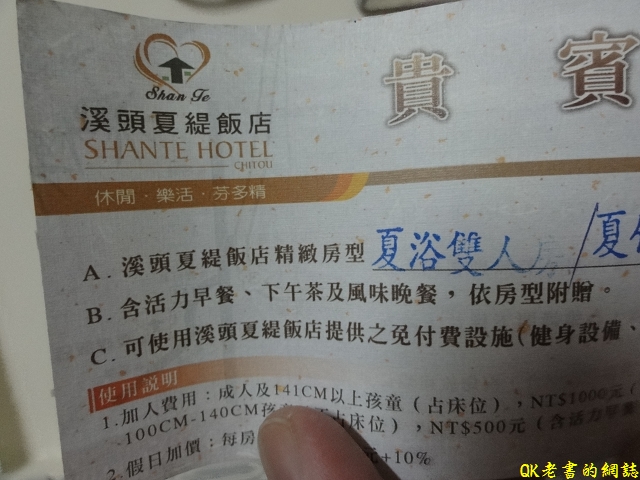 Shan Te
貴賓
溪頭夏緹飯店
SHANTE HOTEL
CHITOU
休閒．樂活．芬多精
A. 溪頭夏緹飯店精緻房型 夏浴雙人房/夏
B. 含活力早餐、下午茶及風味晚餐，依房型附贈。
C. 可使用溪頭夏緹飯店提供之免付費設施(健身設備、
使用說明
1.加人費用：成人及141CM以上孩童（占床位），NT$1000元（
100CM-140CM孩 占床位），NT$500元（含活力早
2.假日加價：每房 元+10%
QK老書的網誌